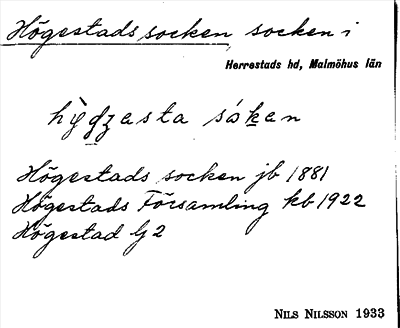 Högestads socken socken i
Herrestads hd, Malmöhus län
socken jb 1881
Högestads Församling kb 1922
Högestad G2
NILS NILSSON 1933